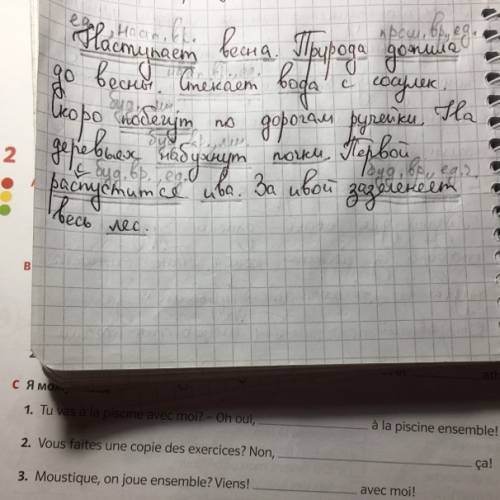 ед., наст. вр. прош. вр., ед.
Наступает весна. Природа дожила
до весны. Стекает вода с сосулек.
буд.
Скоро побегут по дорогам ручейки. На
буд. вр.,
деревьях набухнут почки. Первой
буд. вр., ед. буд. вр., ед. ч.
распустится ива. За ивой зазеленеет
весь лес.
2
B
C Я
1. Tu vas à la piscine avec moi? – Oh oui, à la piscine ensemble!
2. Vous faites une copie des exercices? Non, ça!
3. Moustique, on joue ensemble? Viens! avec moi!